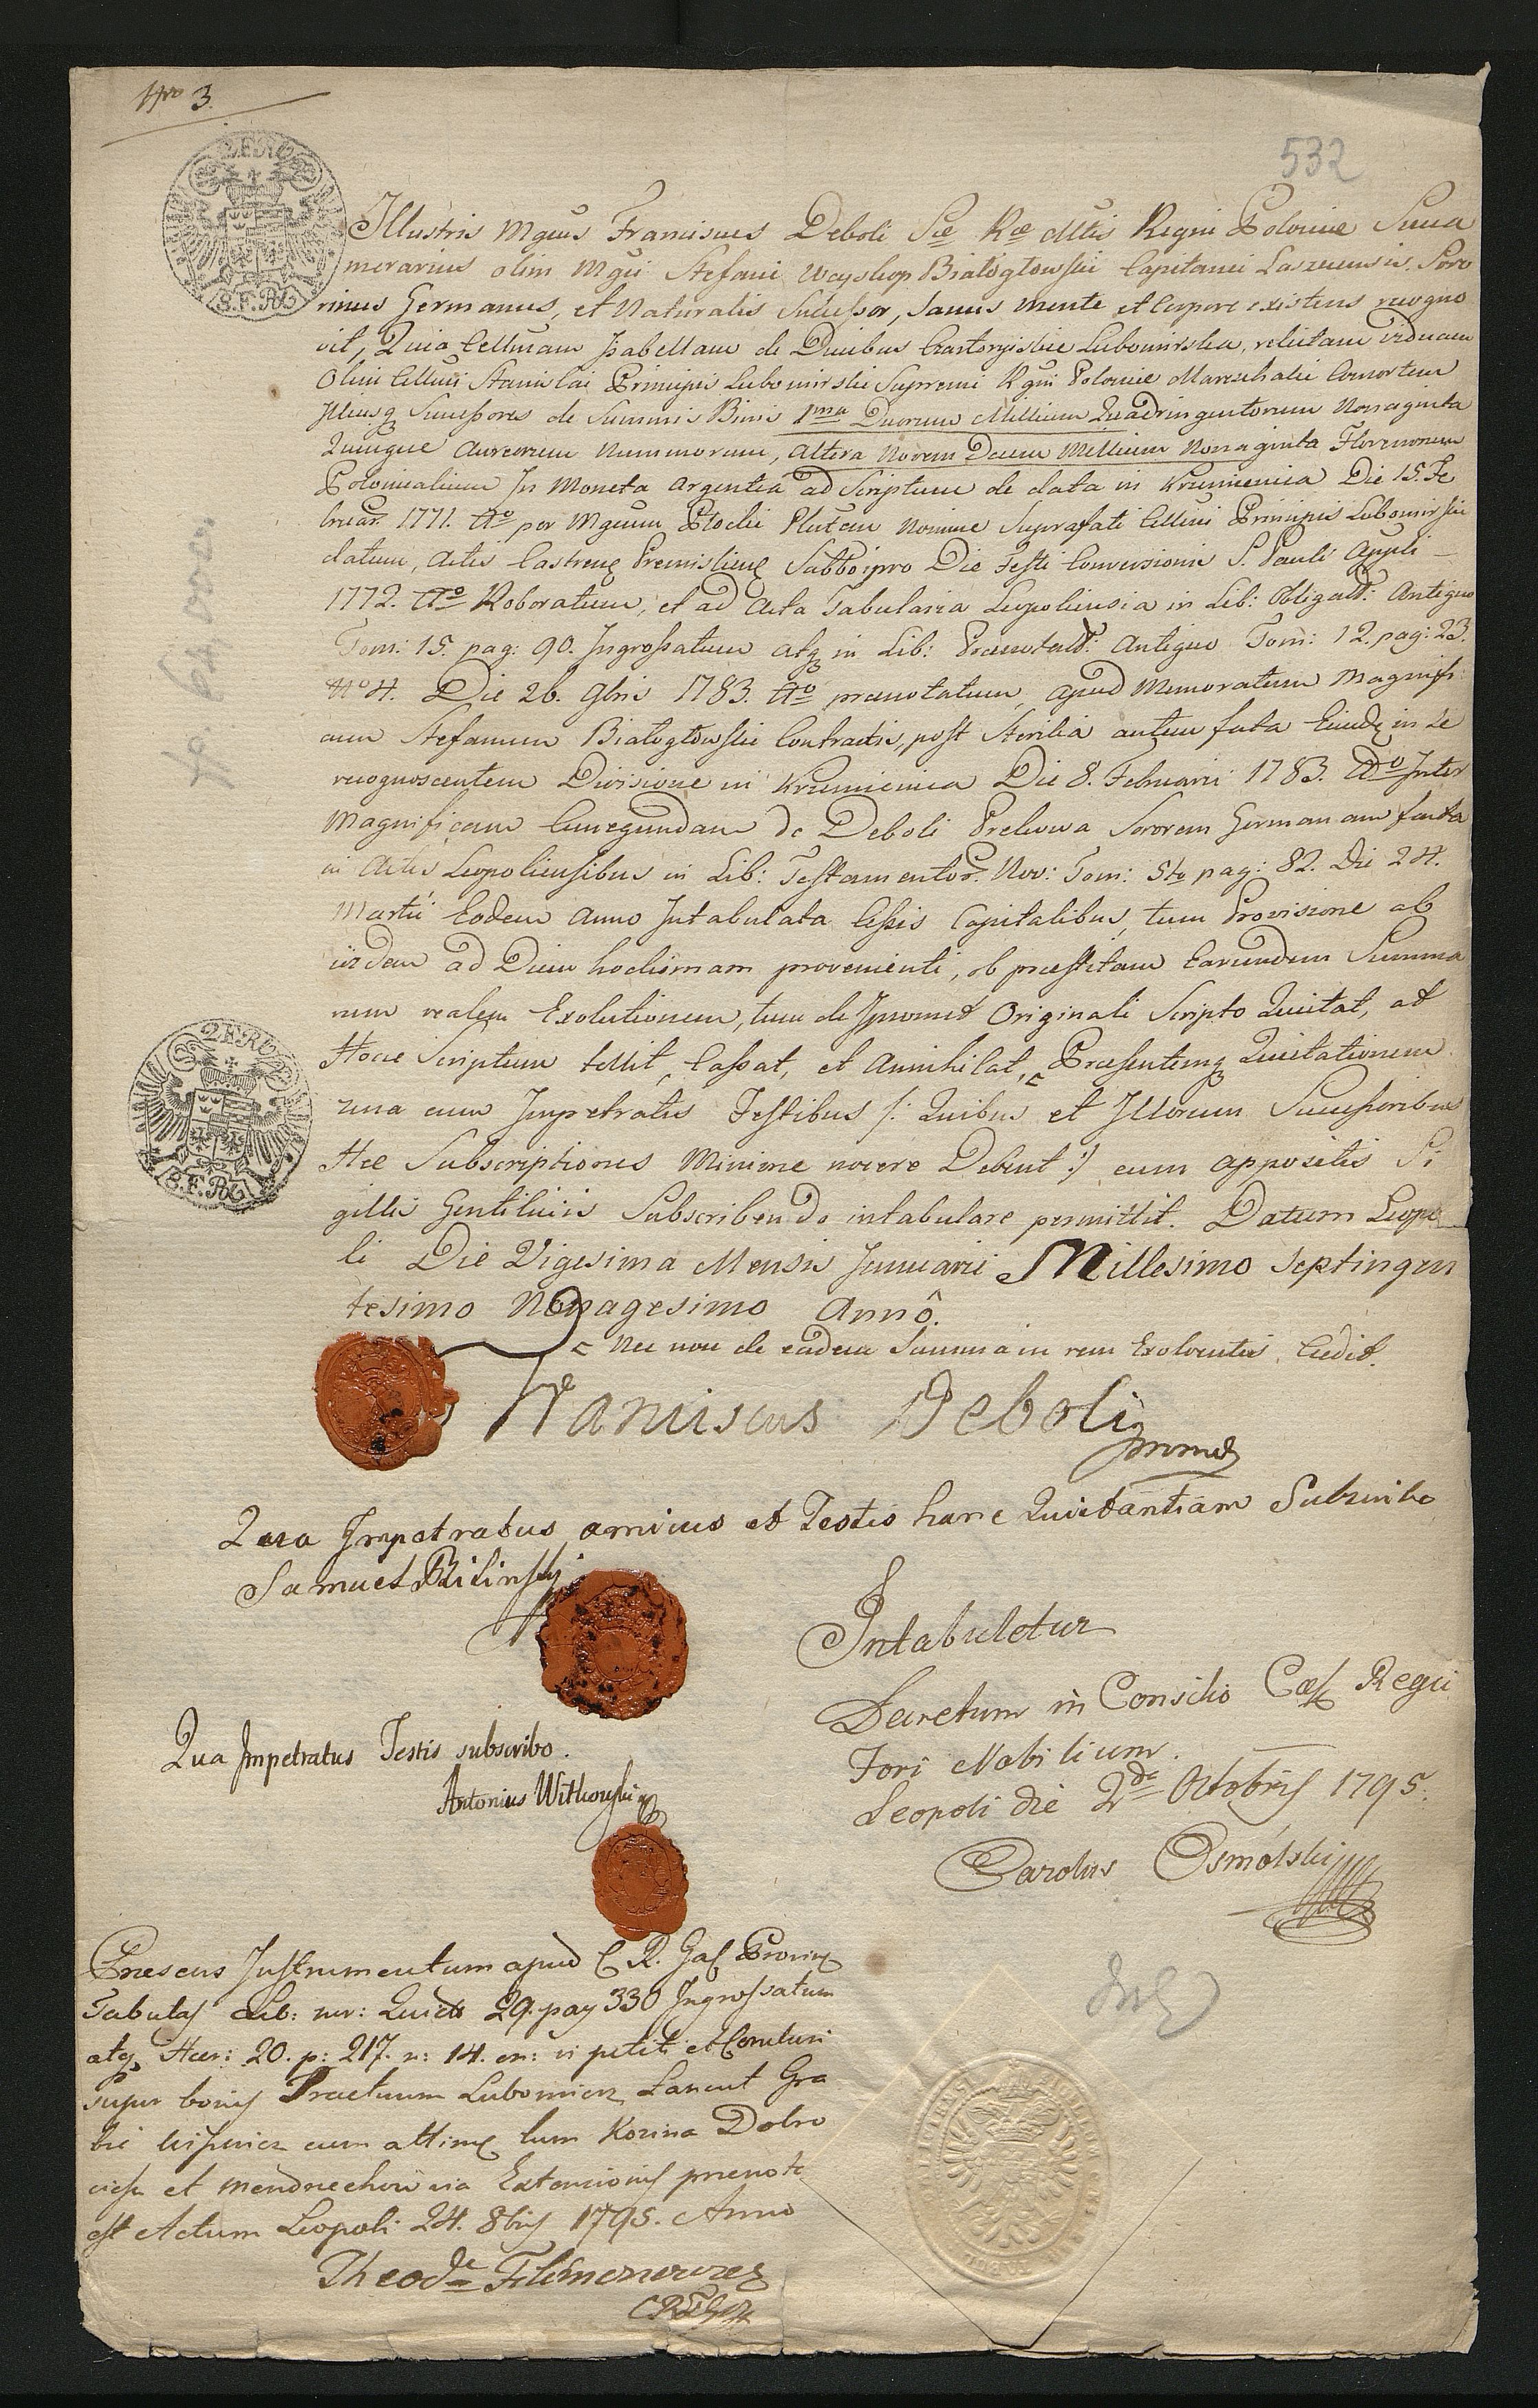 Nro 3.
532
2 FR
S.F.R.
Illustris Mgnus Franciscus Deboli Sæ Ræ Mttis Regni Poloniæ Suca
merarius olim Mgci Stefani Wayslop Białogłowski Capitanei Laszcensis, Soro
rinus Germanus, et Naturalis Successor, Sanus mente et Corpore existens recogno
vit, Quia Cellmam Isabellam de Ducibus Czartoryskie Lubomirska, relictam viduam
Olim Cellmi Stanislai Principis Lubomirski Supremi Rgni Poloniæ Mareschalci Consortem
Illiusq Successores de Summis Binis 1ma Duorum Millium Quadringentorum Nonaginta
Quinque Aureorum Nummorum, altera Novem Decem Millium Nonaginta Florenorum
Polonicalium In Moneta Argentea ad Scriptum de data in Krzemienica Die 15. Fe
bruar. 1771. Ao per Mgcum Plocki Nomine Suprafati Cellmi Principis Lubomirski
datum, Actis Castrens Premisliens Sabbo ipso Die Festi Conversionis S. Pauli Appli
1772. Ao Roboratum, et ad Acta Tabularia Leopoliensia in Lib: Obligatt: Antiquo
Tom: 15. pag: 90. Ingrossatum atq in Lib: Prænotatt: Antiquo Tom: 12. pag: 23.
No 4. Die 26. 9bris 1783. Ao prænotatum, apud Memoratum Magnifi
cum Stefanum Białogłowski Contractis, post Sterilia autem fata Eiusd in se
recognoscentem Divisione in Krzemienica Die 8. Februarii 1783. Ao Inter
Magnificam Cunegundam de Deboli Prekowa Sororem Germanam facta
in Actis Leopoliensibus in Lib: Testamentor. Nov: Tom: 5to pag: 82. Die 24.
Martii Eodem Anno Intabulata Cessis Capitalibus, tum Provisione ab
iisdem ad Diem hodiernam provenienti, ob præstitam Earundem Summa
rum realem Exolutionem, tum de Originali Scripto Quitat, at
Hocce Scriptum tollit, Cassat, et Annihilat, Præsentemq Quietationem
una cum Impetratis Testibus /: Quibus et Illorum Successoribus
Hæ Subscriptiones Minime nocere Debent :/ cum appositis Si
gillis Gentilitiis Subscribendo intabulare permittit. Datum Leopo
li Die Vigesima Mensis Januarii Millesimo Septingen
tesimo Nonagesimo Annô.
Nec non de eadem Summa in rem Exolventis, Cedit.
2 FR
S.F.R.
Franciscus Deboli
mmp
Qua Impetratus amicus et Testis hanc Quietantiam Subscribo
Samuel Bilinsky
Qua Impetratus Testis subscribo.
Antonius Witkowski
Intabuletur
Decretum in Consilio Cæs Regii
Fori Nobilium.
Leopoli die 2da Octobris 1795.
Carolus Osmólski
Præsens Instrumentum apud C. R. Gal Provin
Tabulas Lib: nov: Quiett 29. pag 330 Ingrossatum
atq Hær: 20. p: 217. n: 14. on: vi petiti et Conclusi
super bonis Tractuum Lubomierz Lancut Gra
bie Wisnicz cum attinq tum Kozina Dobro
et Mendrzechow via Extensionis prænot
est Actum Leopoli 24. 8bris 1795. Anno
Theod Filimonowicz